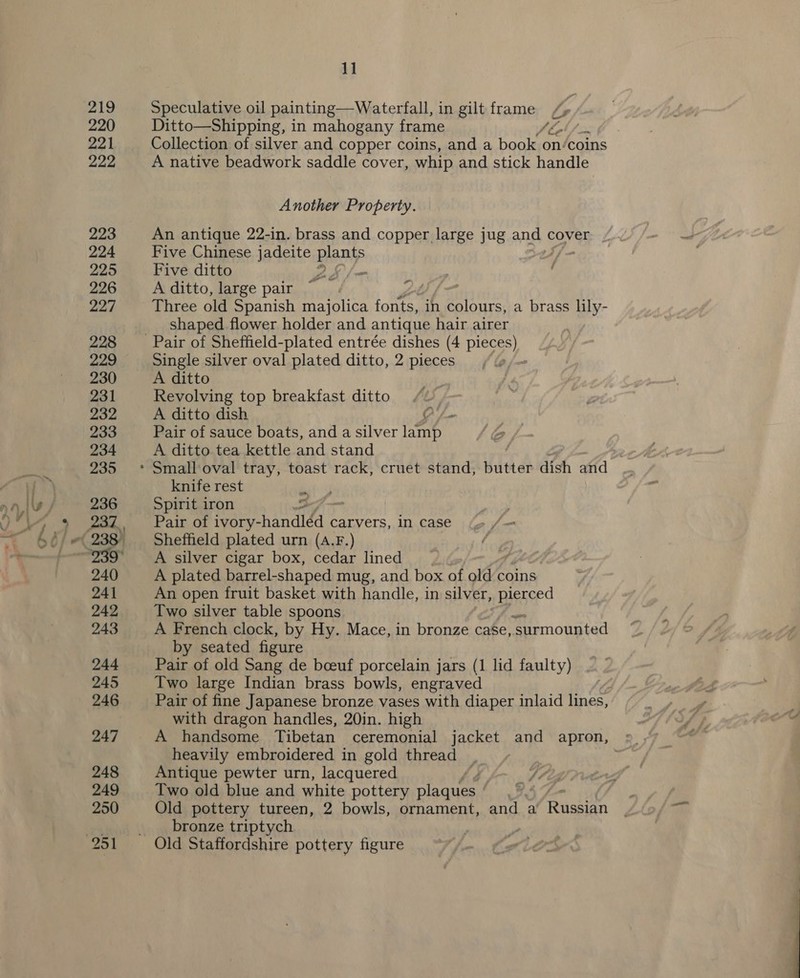 11
219 Speculative oil painting—Waterfall, in gilt frame
220 Ditto—Shipping, in mahogany frame
221 Collection of silver and copper coins, and a book on coins
222 A native beadwork saddle cover, whip and stick handle
Another Property.
223 An antique 22-in. brass and copper large jug and cover
224 Five Chinese jadeite plants
225 Five ditto
226 A ditto, large pair
227 Three old Spanish majolica fonts, in colours, a brass lily-
shaped flower holder and antique hair airer
228 Pair of Sheffield-plated entrée dishes (4 pieces)
229 Single silver oval plated ditto, 2 pieces
230 A ditto
231 Revolving top breakfast ditto
232 A ditto dish
233 Pair of sauce boats, and a silver lamp
234 A ditto tea kettle and stand
235 Small oval tray, toast rack, cruet stand, butter dish and
knife rest
236 Spirit iron
237 Pair of ivory-handled carvers, in case
238 Sheffield plated urn (A.F.)
239 A silver cigar box, cedar lined
240 A plated barrel-shaped mug, and box of old coins
241 An open fruit basket with handle, in silver, pierced
242 Two silver table spoons
243 A French clock, by Hy. Mace, in bronze case, surmounted
by seated figure
244 Pair of old Sang de bœuf porcelain jars (1 lid faulty)
245 Two large Indian brass bowls, engraved
246 Pair of fine Japanese bronze vases with diaper inlaid lines,
with dragon handles, 20in. high
247 A handsome Tibetan ceremonial jacket and apron,
heavily embroidered in gold thread
248 Antique pewter urn, lacquered
249 Two old blue and white pottery plaques
250 Old pottery tureen, 2 bowls, ornament, and a Russian
bronze triptych
251 Old Staffordshire pottery figure